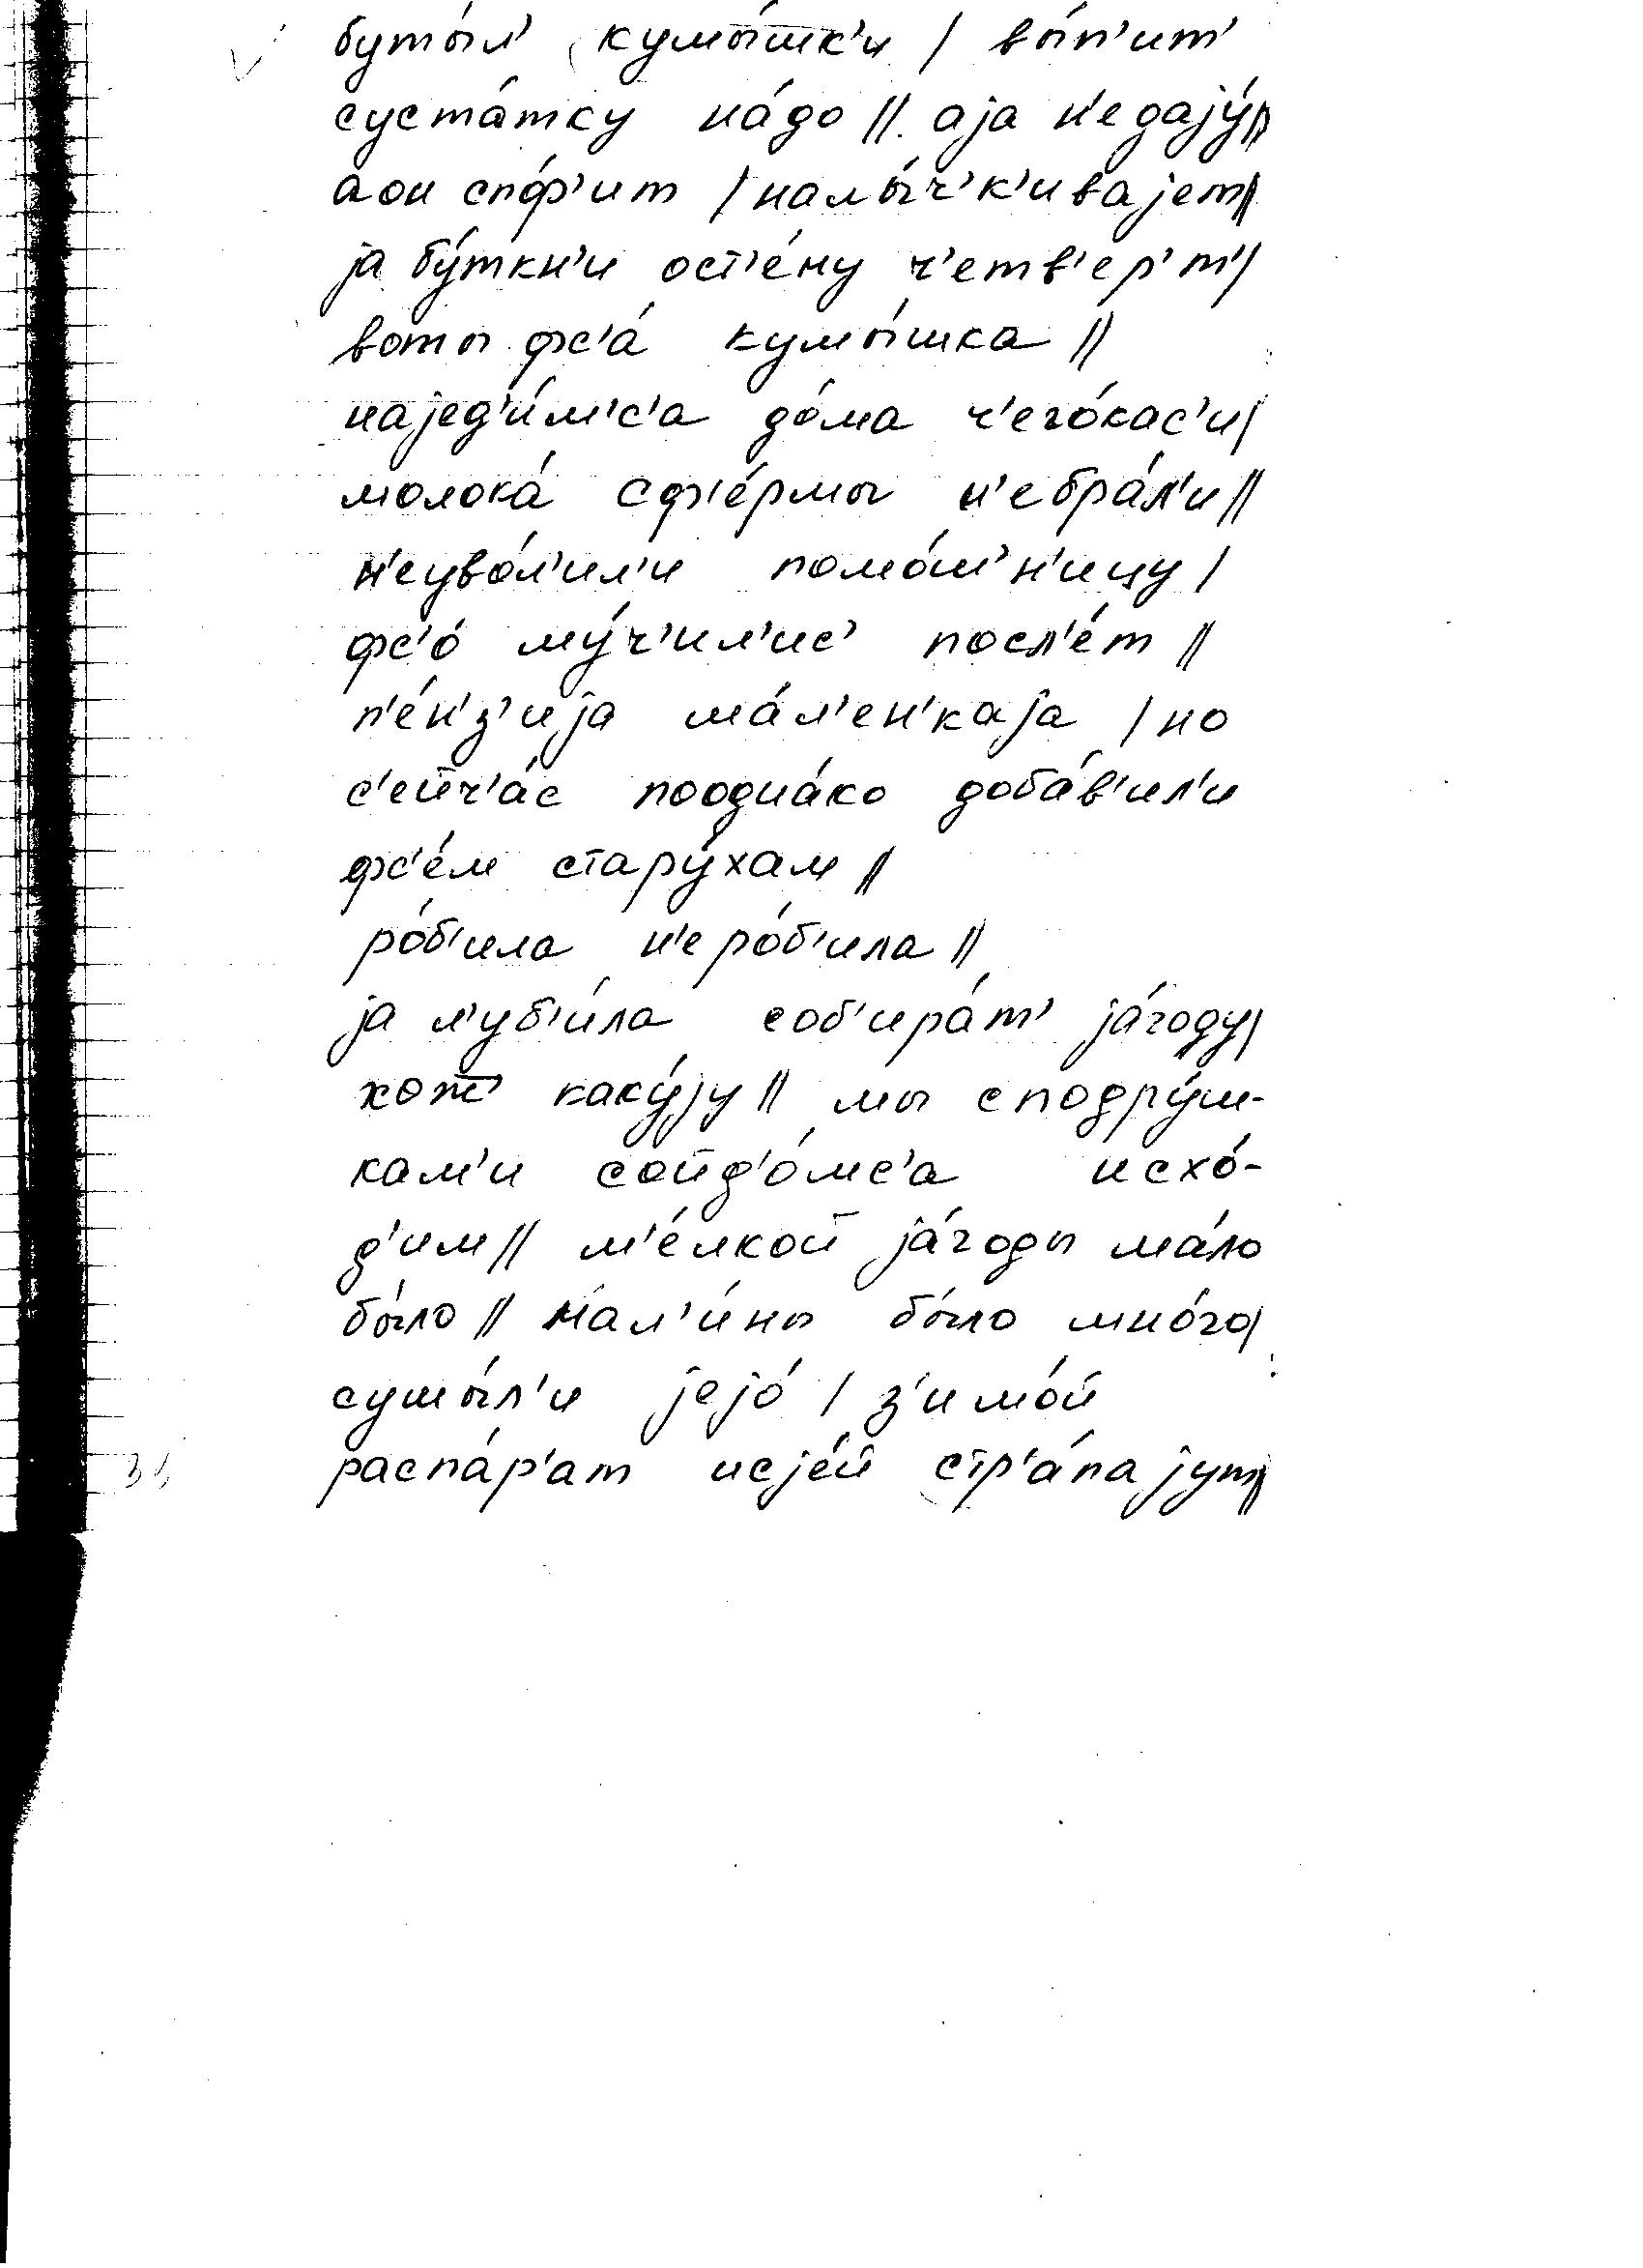 буты́л' кумы́шк'и / вы́п'ит'
суста́тку на́до // аjа н'едаjу́//
аон спо́р'ит / налы́ч'к'иваjет//
jа бу́ткн'и ост'е́ну ч'етв'ер'т'/
воты фс'а́ кумы́шка //
наjед'и́м'с'а до́ма ч'его́кас'и/
молока́ сф'е́рмы н'ебра́л'и//
н'суво́л'ил'и помо́ш'н'ицу /
фс'о́ му́ч'ил'ис' посл'е́т //
п'е́н'з'иjа ма́л'ен'каjа / но
с'ейч'а́с поодна́ко доба́в'ил'и
фс'е́м стару́хам //
ро́б'ила н'еро́б'ила //
jа л'уб'и́ла соб'ира́т' jа́году/
хот' каку́jу // мы сподру́ш-
кам'и сойд'о́мс'а исхо́-
д'им // м'е́лкой jа́годы ма́ло
бы́ло // мал'и́ны бы́ло мно́го/
сушы́л'и jejо́ / з'имо́й
распа́р'ат исjе́й стр'а́паjут//